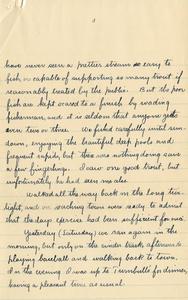 have never seen a prettier stream so easy to
fish, or capable of supporting so many trout if
reasonably treated by the public. But the poor
fish are kept scared to a finish by wading
fishermen, and it is seldom that anyone gets
even two or three. We fished carefully until sun-
down, enjoying the beautiful deep pools and
frequent rapids, but there was nothing doing save
a few fingerlings. I saw one good trout, but
unfortunately he had seen me also.
Walked all the way back in the long twi-
light, and on reaching town were ready to admit
that the days exercise had been sufficient for us.
Yesterday (Saturday) we ran again in the
morning, but only on the under bank, afternoon
playing baseball and walking back to town.
In the evening I was up to Trumbulls for dinner,
having a pleasant time as usual.